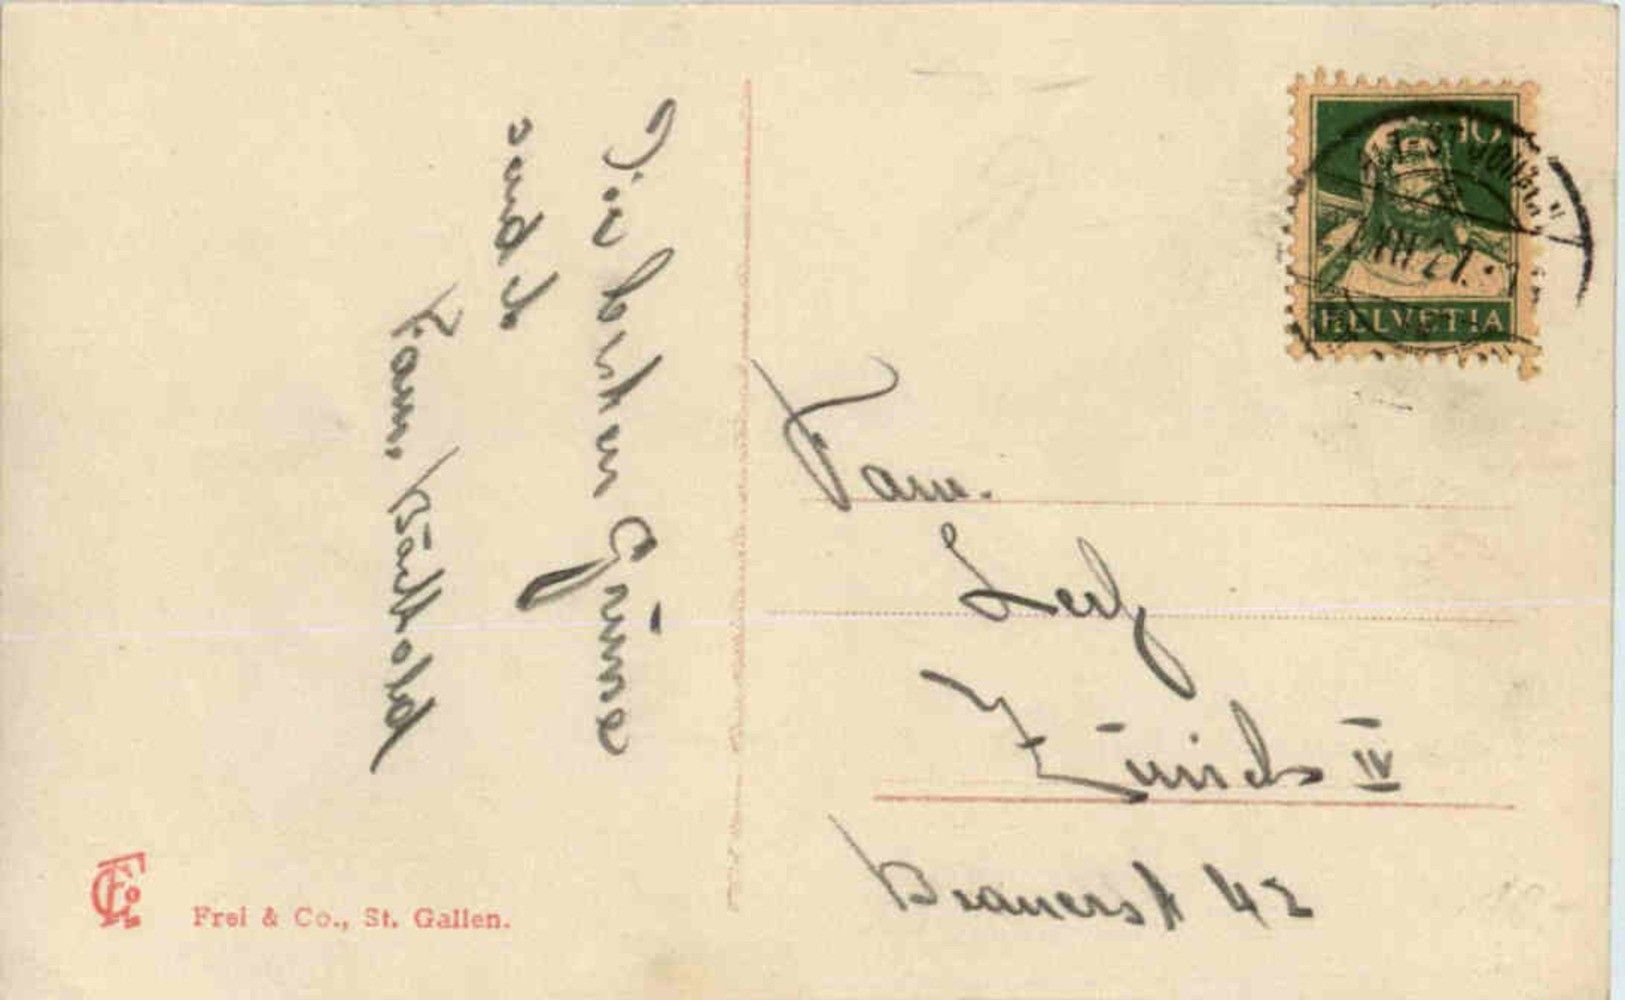 Die besten Grüsse
sendet
Fam. Bätthold
10
HELVETIA
Fam.
Zürich IV
Brauerst 42
Frei & Co., St. Gallen.